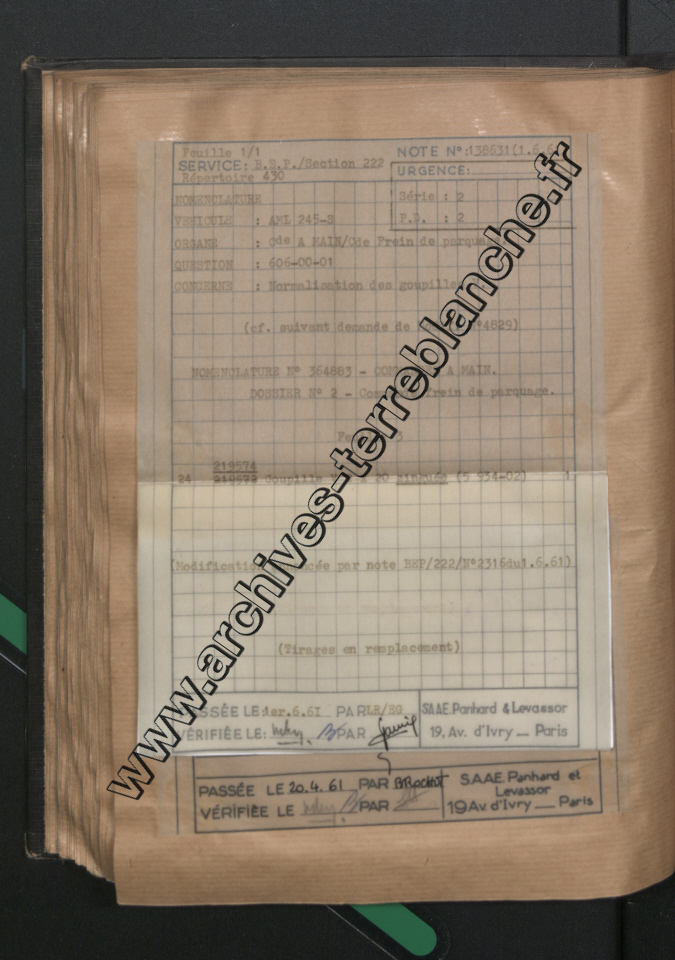 Feuille 1/1
SERVICE: B.E.P./Section 222
Répertoire 430
NOTE N°:138631(1.6.6
URGENCE:
NOMENCLATURE
Série : 2
VEHICULE : AML 245-B
P.D. : 2
ORGANE : Cde A MAIN/Cde Frein de
QUESTION : 606-00-01
CONCERNE : Normalisation des goupilles
(cf. suivant demande de N°4829)
NOMENCLATURE N° 364883 - A MAIN.
DOSSIER N° 2 - frein de parquage.
219574
24 219573 Goupille 20 zinguée (5 934-02) 1
(Modification par note BEP/222/N°2316du1.6.61)
(Tirages en remplacement)
PASSÉE LE 1er.6.61 PAR LR/EG
SAAE. Panhard & Levassor
VÉRIFIÉE LE: PAR
19, Av. d'Ivry — Paris
PASSÉE LE 20.4.61 PAR
SAAE. Panhard et
Levassor
VÉRIFIÉE LE PAR
19 Av d'Ivry — Paris
www.archives-terreblanche.fr